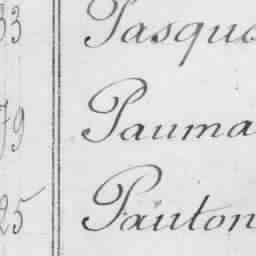 33 Pasque
79 Pauma
25 Pauton